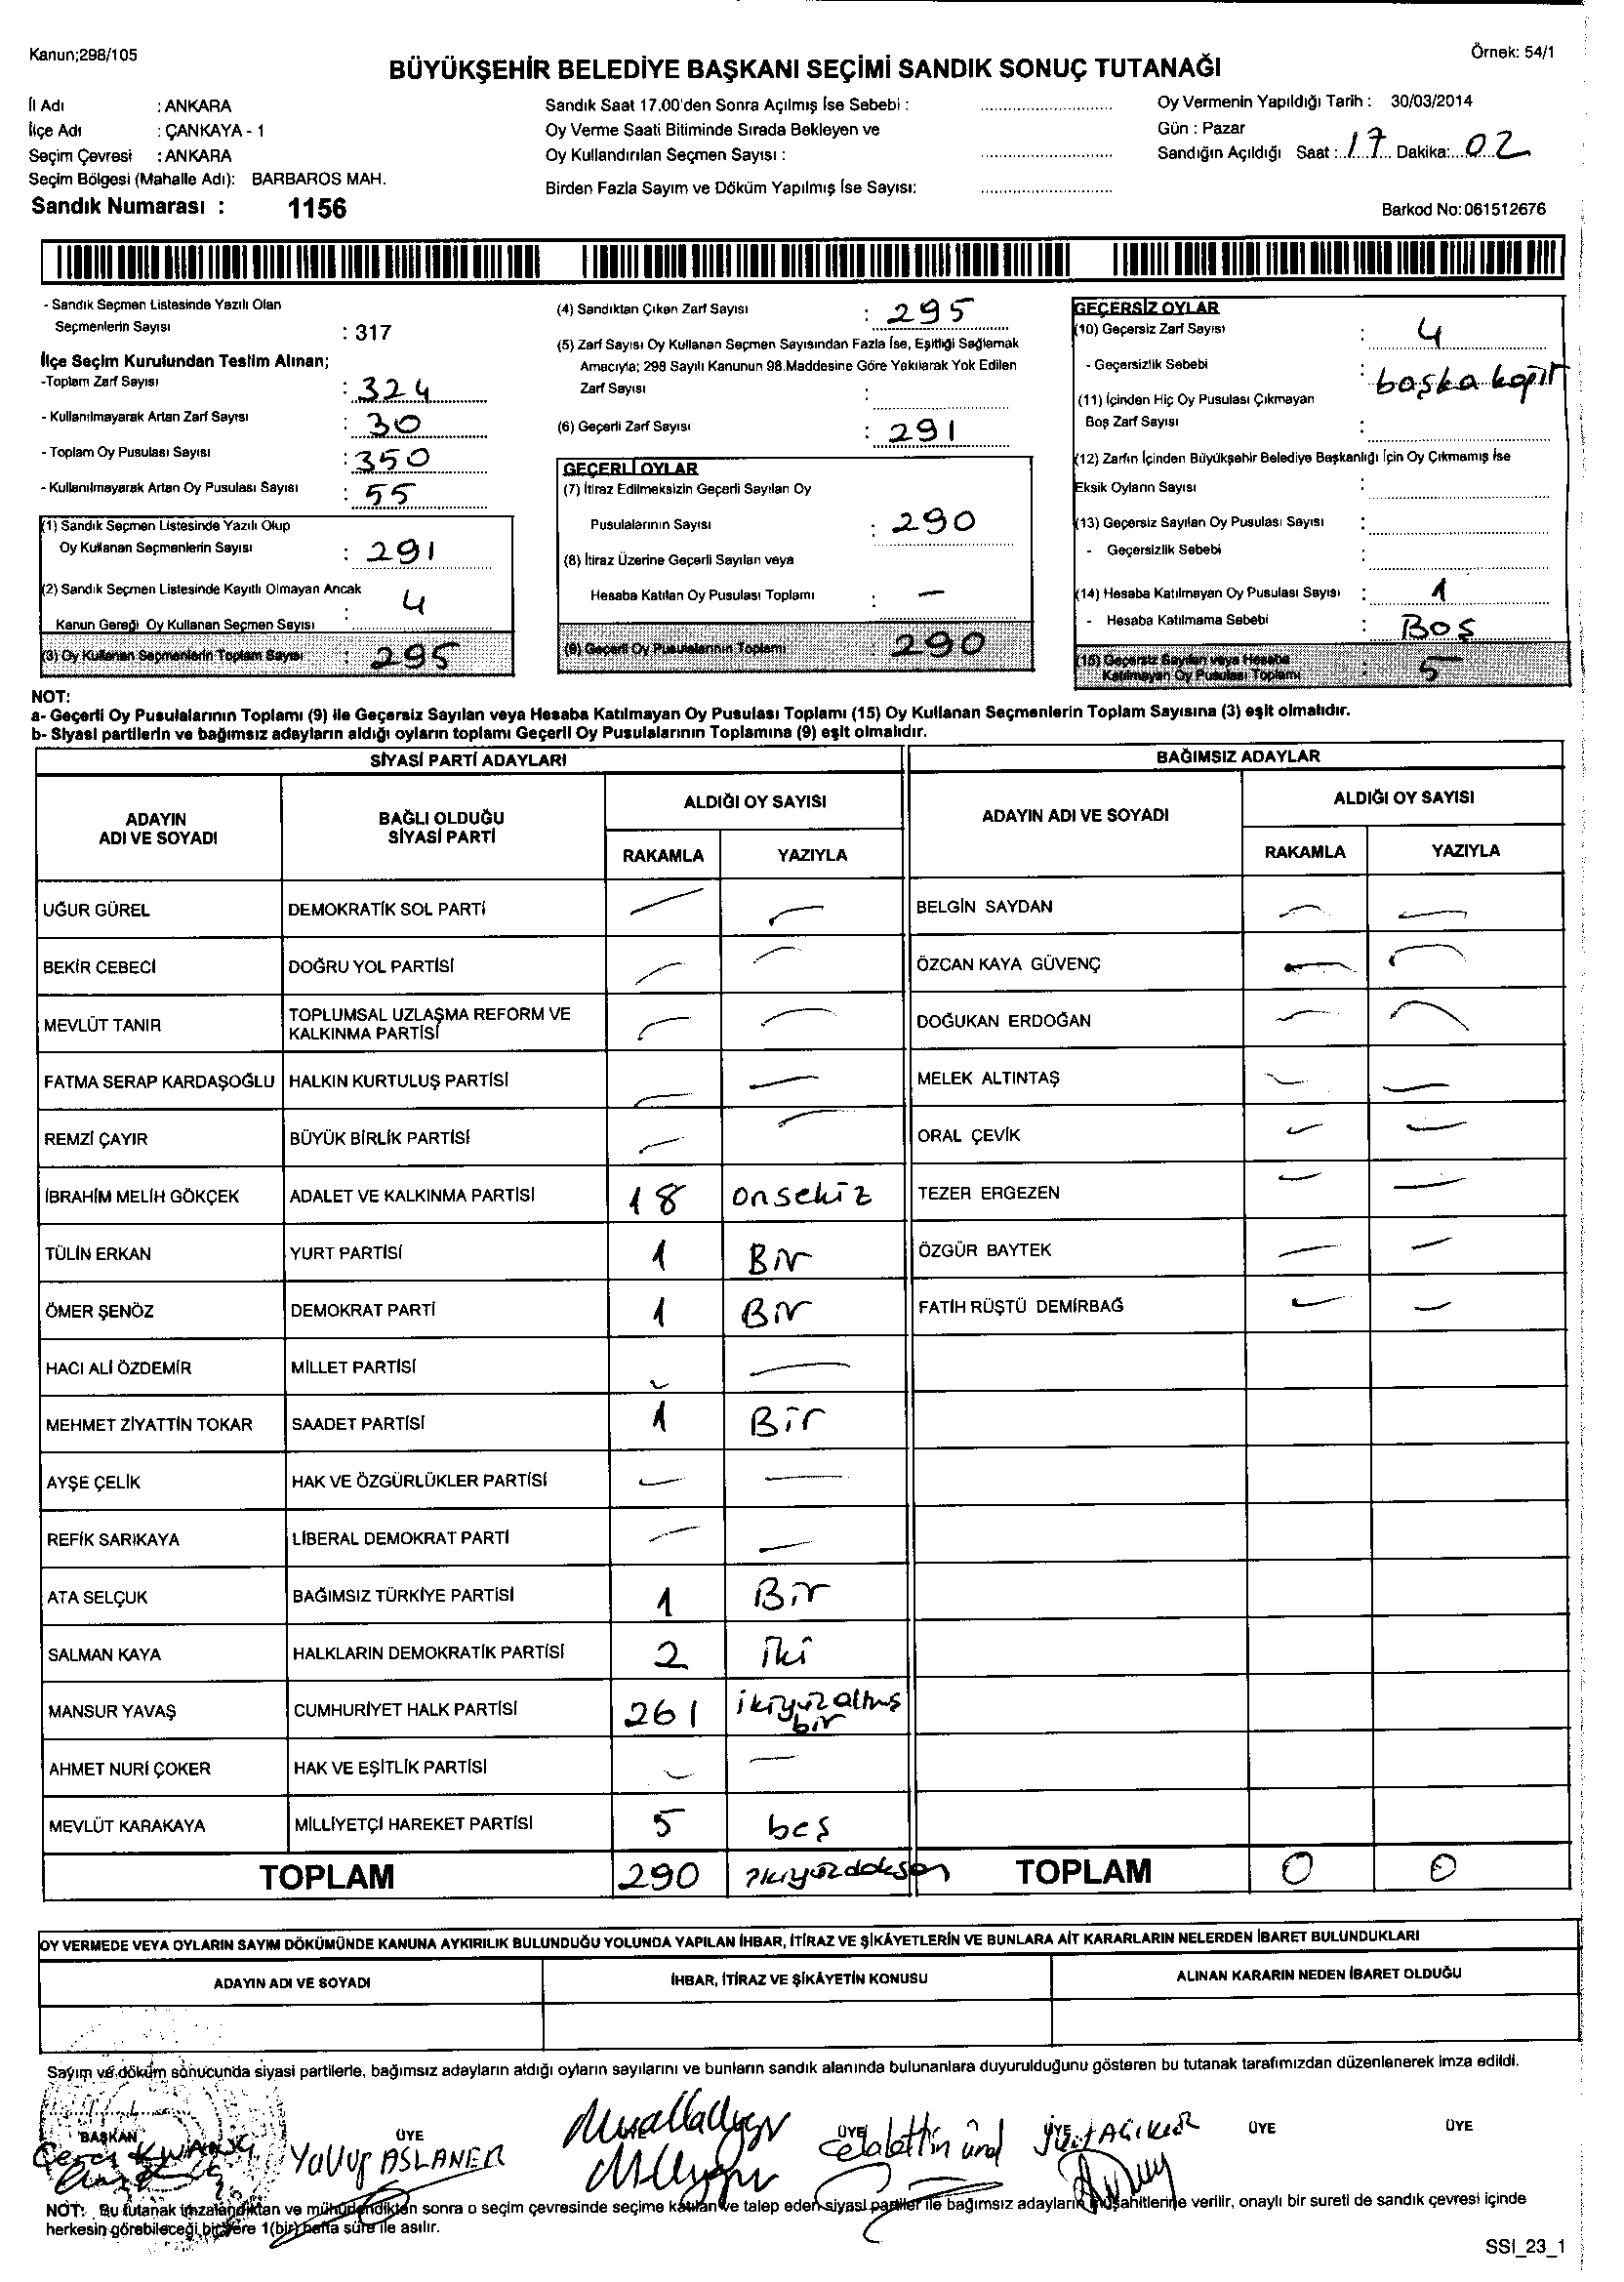 Kanun;298/105
Örnek: 54/1
BÜYÜKŞEHİR BELEDİYE BAŞKANI SEÇİMİ SANDIK SONUÇ TUTANAĞI
İl Adı : ANKARA
İlçe Adı : ÇANKAYA - 1
Seçim Çevresi : ANKARA
Seçim Bölgesi (Mahalle Adı): BARBAROS MAH.
Sandık Numarası : 1156
Sandık Saat 17.00'den Sonra Açılmış İse Sebebi :
Oy Verme Saati Bitiminde Sırada Bekleyen ve
Oy Kullandırılan Seçmen Sayısı :
Birden Fazla Sayım ve Döküm Yapılmış İse Sayısı:
Oy Vermenin Yapıldığı Tarih : 30/03/2014
Gün : Pazar
Sandığın Açıldığı Saat : 17 Dakika: 02
Barkod No:061512676
- Sandık Seçmen Listesinde Yazılı Olan
Seçmenlerin Sayısı : 317
İlçe Seçim Kurulundan Teslim Alınan;
-Toplam Zarf Sayısı : 324
- Kullanılmayarak Artan Zarf Sayısı : 30
- Toplam Oy Pusulası Sayısı : 350
- Kullanılmayarak Artan Oy Pusulası Sayısı : 55
(1) Sandık Seçmen Listesinde Yazılı Olup
Oy Kullanan Seçmenlerin Sayısı : 291
(2) Sandık Seçmen Listesinde Kayıtlı Olmayan Ancak
Kanun Gereği Oy Kullanan Seçmen Sayısı : 4
(3) Oy Kullanan Seçmenlerin Toplam Sayısı : 295
(4) Sandıktan Çıkan Zarf Sayısı : 295
(5) Zarf Sayısı Oy Kullanan Seçmen Sayısından Fazla İse, Eşitliği Sağlamak
Amacıyla; 298 Sayılı Kanunun 98.Maddesine Göre Yakılarak Yok Edilen
Zarf Sayısı :
(6) Geçerli Zarf Sayısı : 291
GEÇERLİ OYLAR
(7) İtiraz Edilmeksizin Geçerli Sayılan Oy
Pusulalarının Sayısı : 290
(8) İtiraz Üzerine Geçerli Sayılan veya
Hesaba Katılan Oy Pusulası Toplamı : —
(9) Geçerli Oy Pusulalarının Toplamı : 290
GEÇERSİZ OYLAR
(10) Geçersiz Zarf Sayısı : 4
- Geçersizlik Sebebi : başka kağıt
(11) İçinden Hiç Oy Pusulası Çıkmayan
Boş Zarf Sayısı :
(12) Zarfın İçinden Büyükşehir Belediye Başkanlığı İçin Oy Çıkmamış İse
Eksik Oyların Sayısı :
(13) Geçersiz Sayılan Oy Pusulası Sayısı :
- Geçersizlik Sebebi :
(14) Hesaba Katılmayan Oy Pusulası Sayısı : 1
- Hesaba Katılmama Sebebi : BOŞ
(15) Geçersiz Sayılan veya Hesaba
Katılmayan Oy Pusulası Toplamı : 5
NOT:
a- Geçerli Oy Pusulalarının Toplamı (9) ile Geçersiz Sayılan veya Hesaba Katılmayan Oy Pusulası Toplamı (15) Oy Kullanan Seçmenlerin Toplam Sayısına (3) eşit olmalıdır.
b- Siyasi partilerin ve bağımsız adayların aldığı oyların toplamı Geçerli Oy Pusulalarının Toplamına (9) eşit olmalıdır.
SİYASİ PARTİ ADAYLARI
BAĞIMSIZ ADAYLAR
ADAYIN ADI VE SOYADI
BAĞLI OLDUĞU SİYASİ PARTİ
ALDIĞI OY SAYISI
RAKAMLA YAZIYLA
ADAYIN ADI VE SOYADI
ALDIĞI OY SAYISI
RAKAMLA YAZIYLA
UĞUR GÜREL DEMOKRATİK SOL PARTİ — — BELGİN SAYDAN — —
BEKİR CEBECİ DOĞRU YOL PARTİSİ — — ÖZCAN KAYA GÜVENÇ — —
MEVLÜT TANIR TOPLUMSAL UZLAŞMA REFORM VE KALKINMA PARTİSİ — — DOĞUKAN ERDOĞAN — —
FATMA SERAP KARDAŞOĞLU HALKIN KURTULUŞ PARTİSİ — — MELEK ALTINTAŞ — —
REMZİ ÇAYIR BÜYÜK BİRLİK PARTİSİ — — ORAL ÇEVİK — —
İBRAHİM MELİH GÖKÇEK ADALET VE KALKINMA PARTİSİ 18 onsekiz TEZER ERGEZEN — —
TÜLİN ERKAN YURT PARTİSİ 1 Bir ÖZGÜR BAYTEK — —
ÖMER ŞENÖZ DEMOKRAT PARTİ 1 Bir FATİH RÜŞTÜ DEMİRBAĞ — —
HACI ALİ ÖZDEMİR MİLLET PARTİSİ — —
MEHMET ZİYATTİN TOKAR SAADET PARTİSİ 1 Bir
AYŞE ÇELİK HAK VE ÖZGÜRLÜKLER PARTİSİ — —
REFİK SARIKAYA LİBERAL DEMOKRAT PARTİ — —
ATA SELÇUK BAĞIMSIZ TÜRKİYE PARTİSİ 1 Bir
SALMAN KAYA HALKLARIN DEMOKRATİK PARTİSİ 2 iki
MANSUR YAVAŞ CUMHURİYET HALK PARTİSİ 261 ikiyüzaltmış bir
AHMET NURİ ÇOKER HAK VE EŞİTLİK PARTİSİ — —
MEVLÜT KARAKAYA MİLLİYETÇİ HAREKET PARTİSİ 5 beş
TOPLAM 290 ikiyüzdoksan TOPLAM 0 0
OY VERMEDE VEYA OYLARIN SAYIM DÖKÜMÜNDE KANUNA AYKIRILIK BULUNDUĞU YOLUNDA YAPILAN İHBAR, İTİRAZ VE ŞİKÂYETLERİN VE BUNLARA AİT KARARLARIN NELERDEN İBARET BULUNDUKLARI
ADAYIN ADI VE SOYADI İHBAR, İTİRAZ VE ŞİKÂYETİN KONUSU ALINAN KARARIN NEDEN İBARET OLDUĞU
Sayım ve döküm sonucunda siyasi partilerle, bağımsız adayların aldığı oyların sayılarını ve bunların sandık alanında bulunanlara duyurulduğunu gösteren bu tutanak tarafımızdan düzenlenerek imza edildi.
BAŞKAN ÜYE ÜYE ÜYE ÜYE ÜYE
YAVUZ ASLANER Celalettin ünal
NOT: Bu tutanak imzalandıktan ve mühürlendikten sonra o seçim çevresinde seçime katılan ve talep eden siyasi partiler ile bağımsız adayların müşahitlerine verilir, onaylı bir sureti de sandık çevresi içinde
herkesin görebileceği bir yere 1(bir) hafta süre ile asılır.
SSI_23_1